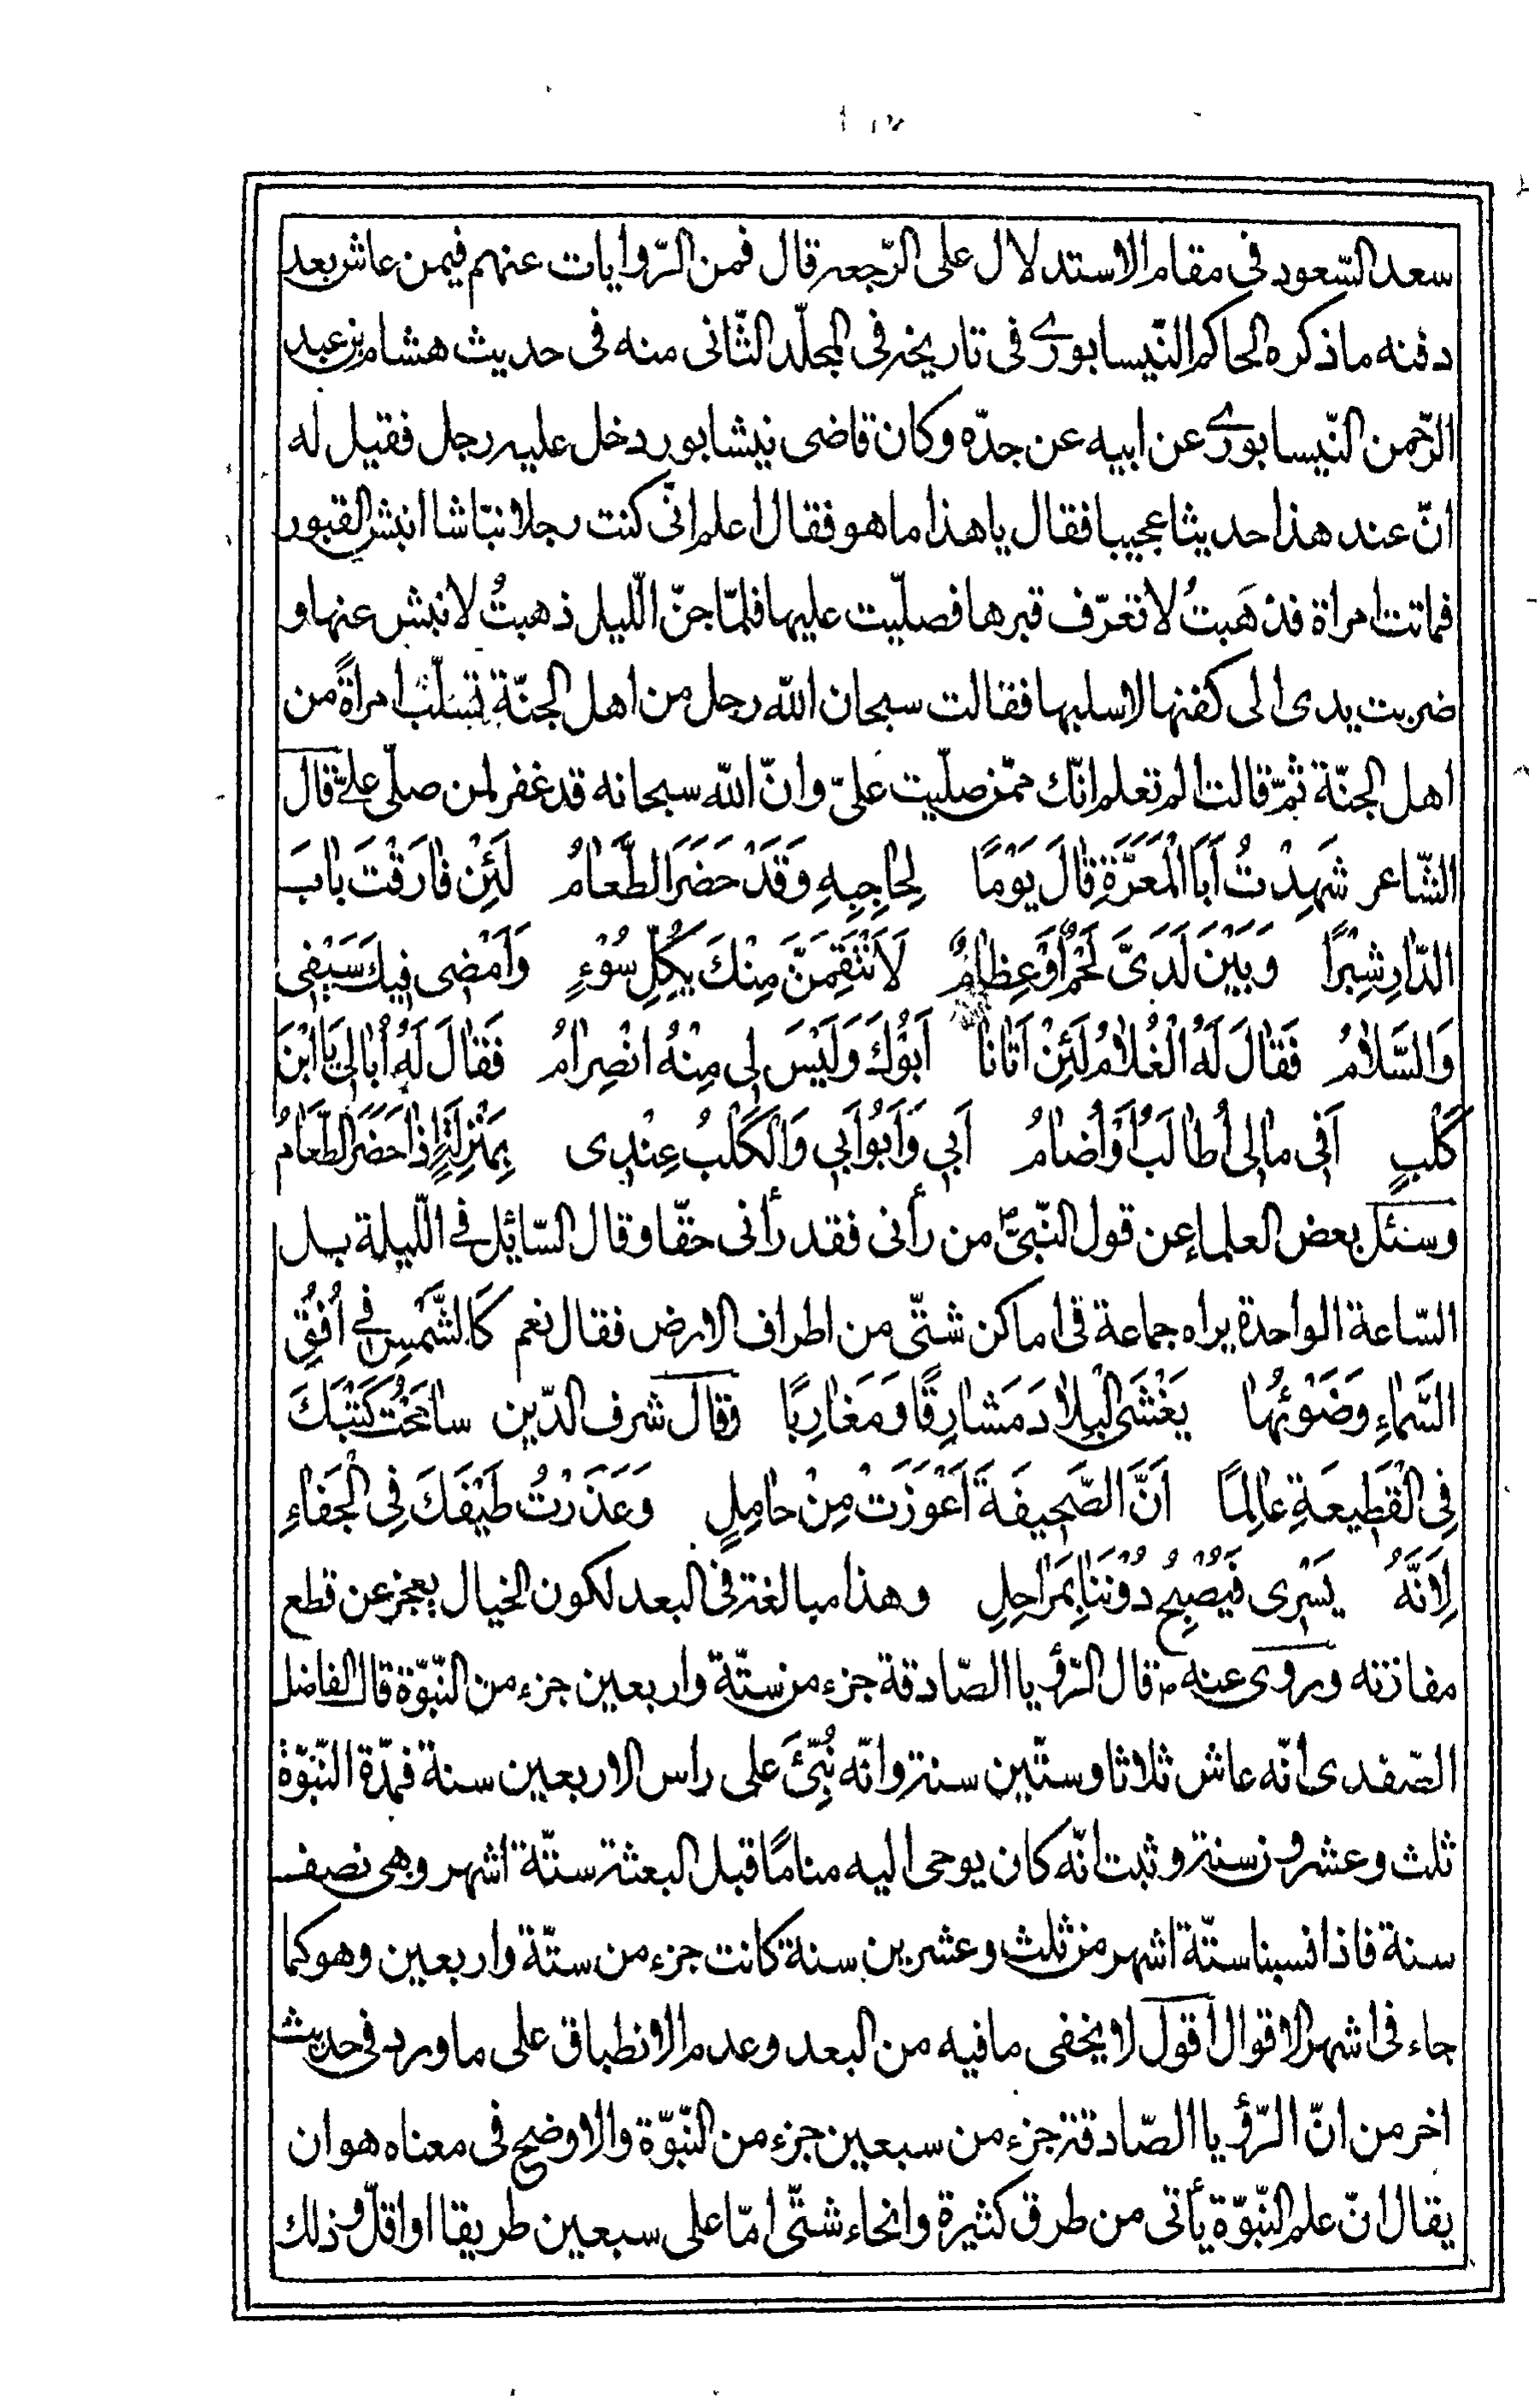 سعد السّعود فى مقام الاستدلال على الرّجعه قال فمن الرّوايات عنهم فيمن عاش بعد
دفنه ما ذكره الحاكم النّيسابورى فى تاريخه فى المجلّد الثّانى منه فى حديث هشام بن عبد
الرّحمن النّيسابورى عن ابيه عن جدّه وكان قاضى نيشابور دخل عليه رجل فقيل له
انّ عند هذا حديثا عجيبا فقال يا هذا ما هو فقال اعلم انّى كنت رجلا نبّاشا انبش القبور
فماتت امراة فذهَبتُ لاتعرّف قبرها فصلّيت عليها فلمّا جنّ اللّيل ذهبتُ لانبش عنها و
ضربت يدى الى كفنها لاسلبها فقالت سبحان اللّه رجل من اهل الجنّة تسلب امراةً من
اهل الجنّة ثمّ قالت الم تعلم انّك ممّن صلّيت علىّ وانّ اللّه سبحانه قد غفر لمن صلّى علىّ قال
الشّاعر شَهِدْتُ اَبَا الْمَعَرَّةِ قٰالَ يَوْمًا لِحٰاجِبِهِ وَقَدْ حَضَرَ الطَّعٰامُ لَئِنْ فٰارَقْتَ بٰابَ
الدّٰارِ شِبْرًا وَبَيْنَ لَدَىَّ لَحْمٌ اَوْ عِظٰامٌ لَاَنْتَقِمَنَّ مِنْكَ بِكُلِّ سُوْءٍ وَاَمْضٰى فيكَ سَيْفٖى
وَالسَّلٰامُ فَقٰالَ لَهُ الْغُلٰامُ لَئِنْ اَتٰانٰا اَبُوْكَ وَلَيْسَ لٖى مِنْهُ انْصِرٰامُ فَقٰالَ لَهُ اُبٰالٖى يَا ابْنَ
كَلْبٍ اَفٖى مٰالٖى اُطٰالَبُ اَوْ اُضٰامُ اَبٖى وَاَبُو اَبٖى وَالْكَلْبُ عِنْدٖى بِمَنْزِلَةٍ اِذٰا حَضَرَ الطَّعٰامُ
وسئل بعض العلماء عن قول النّبىّ ص من رأنى فقد رأنى حقّا وقال السّائل فى اللّيلة بل
السّاعة الواحدة يراه جماعة فى اماكن شتّى من اطراف الارض فقال نعم كَالشَّمْسِ فٖى اُفُقِ
السَّمٰاءِ وَضَوْئُهٰا يَغْشَى الْبِلٰادَ مَشٰارِقًا وَمَغٰارِبًا وقال شرف الدّين سٰامَحْتُ كَتْبَكَ
فِى الْقَطٖيعَةِ عٰالِمًا اَنَّ الصَّحٖيفَةَ اَعْوَزَتْ مِنْ حٰامِلٍ وَعَذَرْتُ طَيْفَكَ فِى الْجَفٰاءِ
لِاَنَّهُ يَسْرٖى فَيُصْبِحُ دُوْنَنٰا بِمَرٰاحِلِ وهذا مبالغة فى البعد لكون الخيال يعجز عن قطع
مفازته وروى عنه ص قال الرّؤيا الصّادقة جزء من ستّة واربعين جزء من النّبوّة قال الفاضل
الصّفدى انّه عاش ثلاثا وستّين سنة وانّه نُبِّئَ على راس الاربعين سنة فمدّة النّبوّة
ثلث وعشرون سنة وثبت انّه كان يوحى اليه منامًا قبل البعثة ستّة اشهر وهى نصف
سنة فاذا نسبنا ستّة اشهر من ثلث وعشرين سنة كانت جزء من ستّة واربعين وهو كما
جاء فى اشهر الاقوال اقول لا يخفى ما فيه من البعد وعدم الانطباق على ما ورد فى حديث
اخر من انّ الرّؤيا الصّادقة جزء من سبعين جزء من النّبوّة والاوضح فى معناه هو ان
يقال انّ علم النّبوّة يأتى من طرق كثيرة وانحاء شتّى امّا على سبعين طريقا او اقلّ وذلك